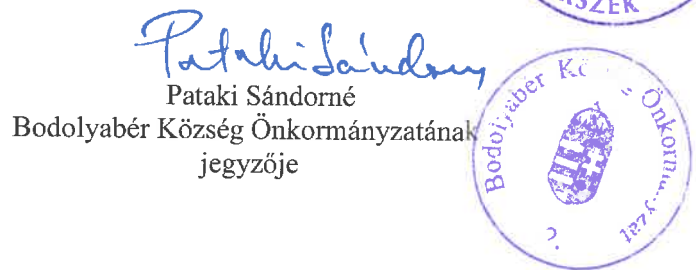 SZÉK
Pataki Sándorné
Pataki Sándorné
Bodolyabér Község Önkormányzatának
jegyzője
Bodolyabér Kö